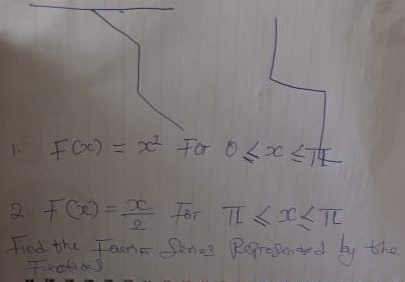 1. F(x) = x² For 0 ≤ x ≤ π
2. F(x) = x/2 For π ≤ x ≤ π
Find the Fourier Series Represented by the
Functions